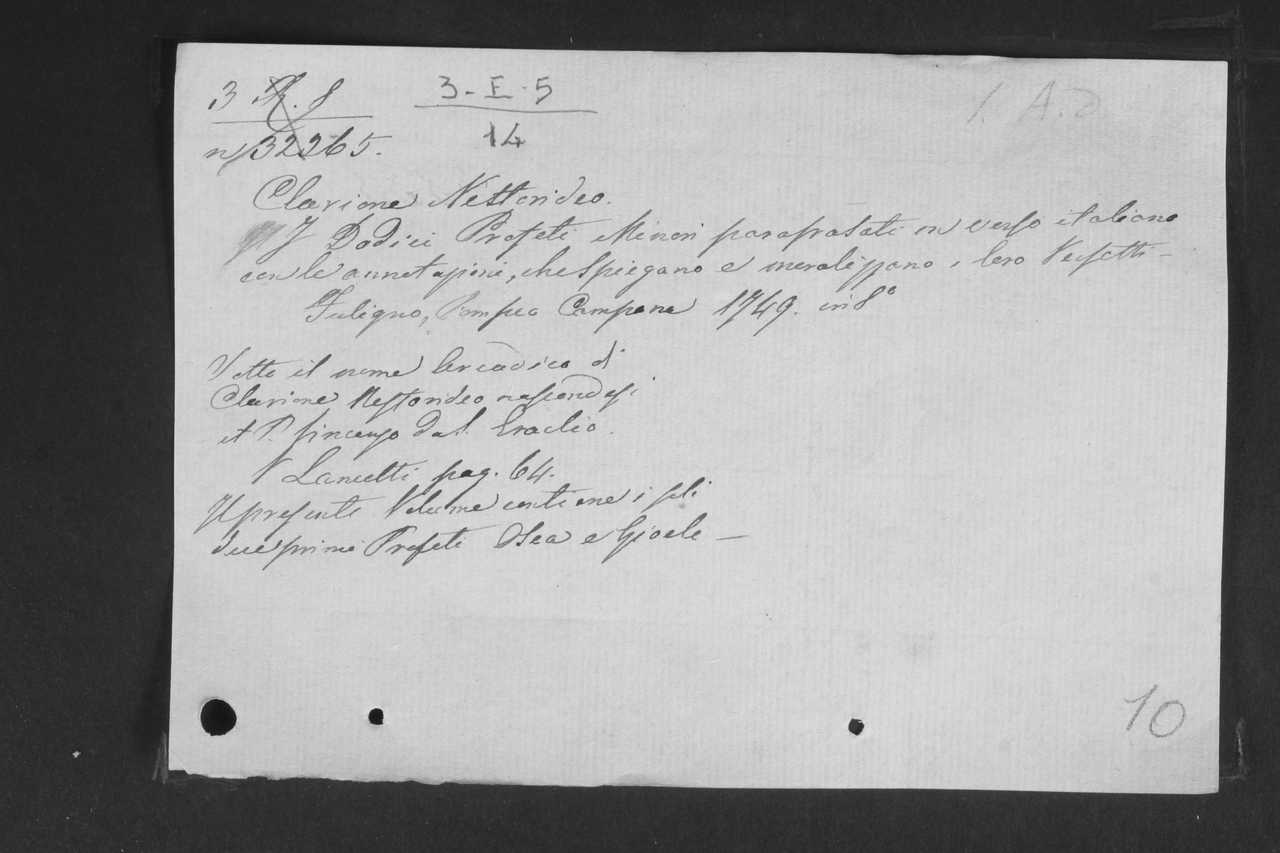 3 R. 8
3-E-5
14
1. A.2
n/32265.
Clarione Nestorideo.
I Dodici Profeti Minori parafrasati in verso italiano
con le annotazioni, che spiegano e moralizzano i loro Versetti -
Fuligno, Pompeo Campana 1749. in 8°
Sotto il nome Arcadico di
Clarione Nestorideo nascondesi
il P. Vincenzo da S. Eraclio.
V Lancetti pag. 64.
Il presente Volume contiene i soli
due primi Profeti Osea e Gioele -
10